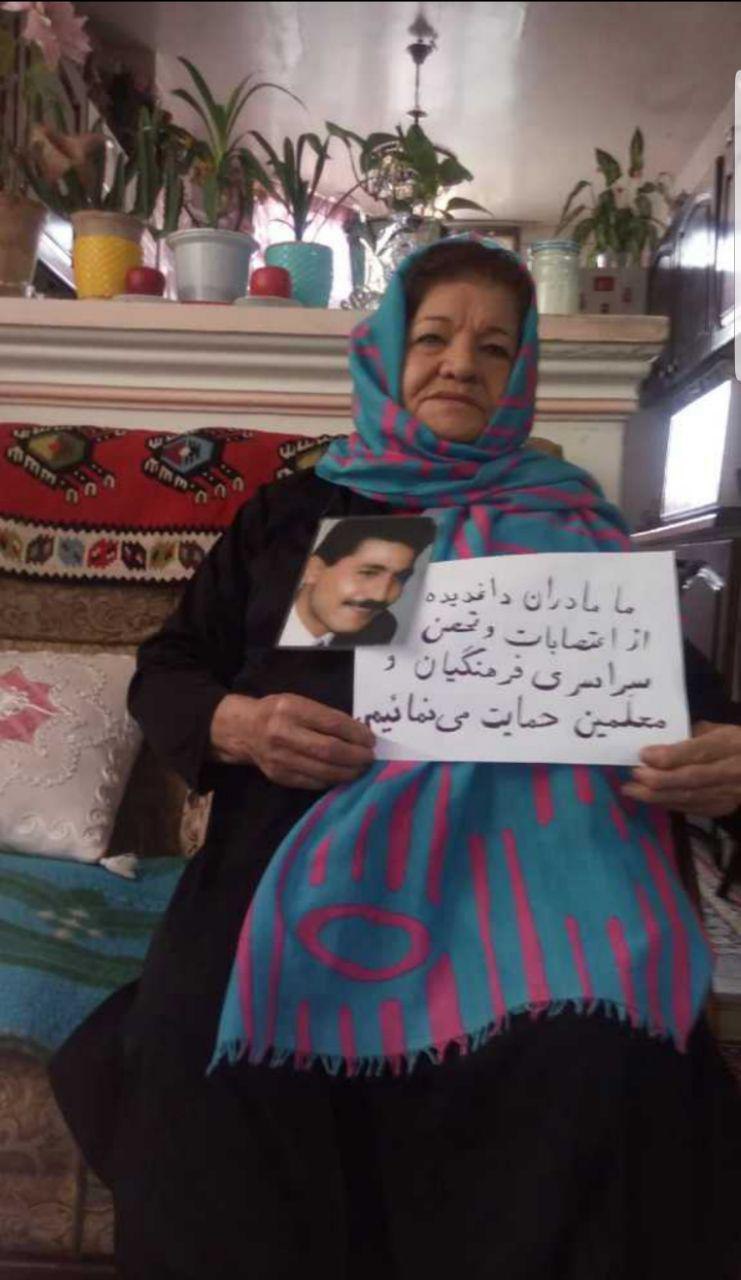 ما مادران داغدیده
از اعتصابات و تحصن
سراسری فرهنگیان و
معلمین حمایت می‌نمائیم